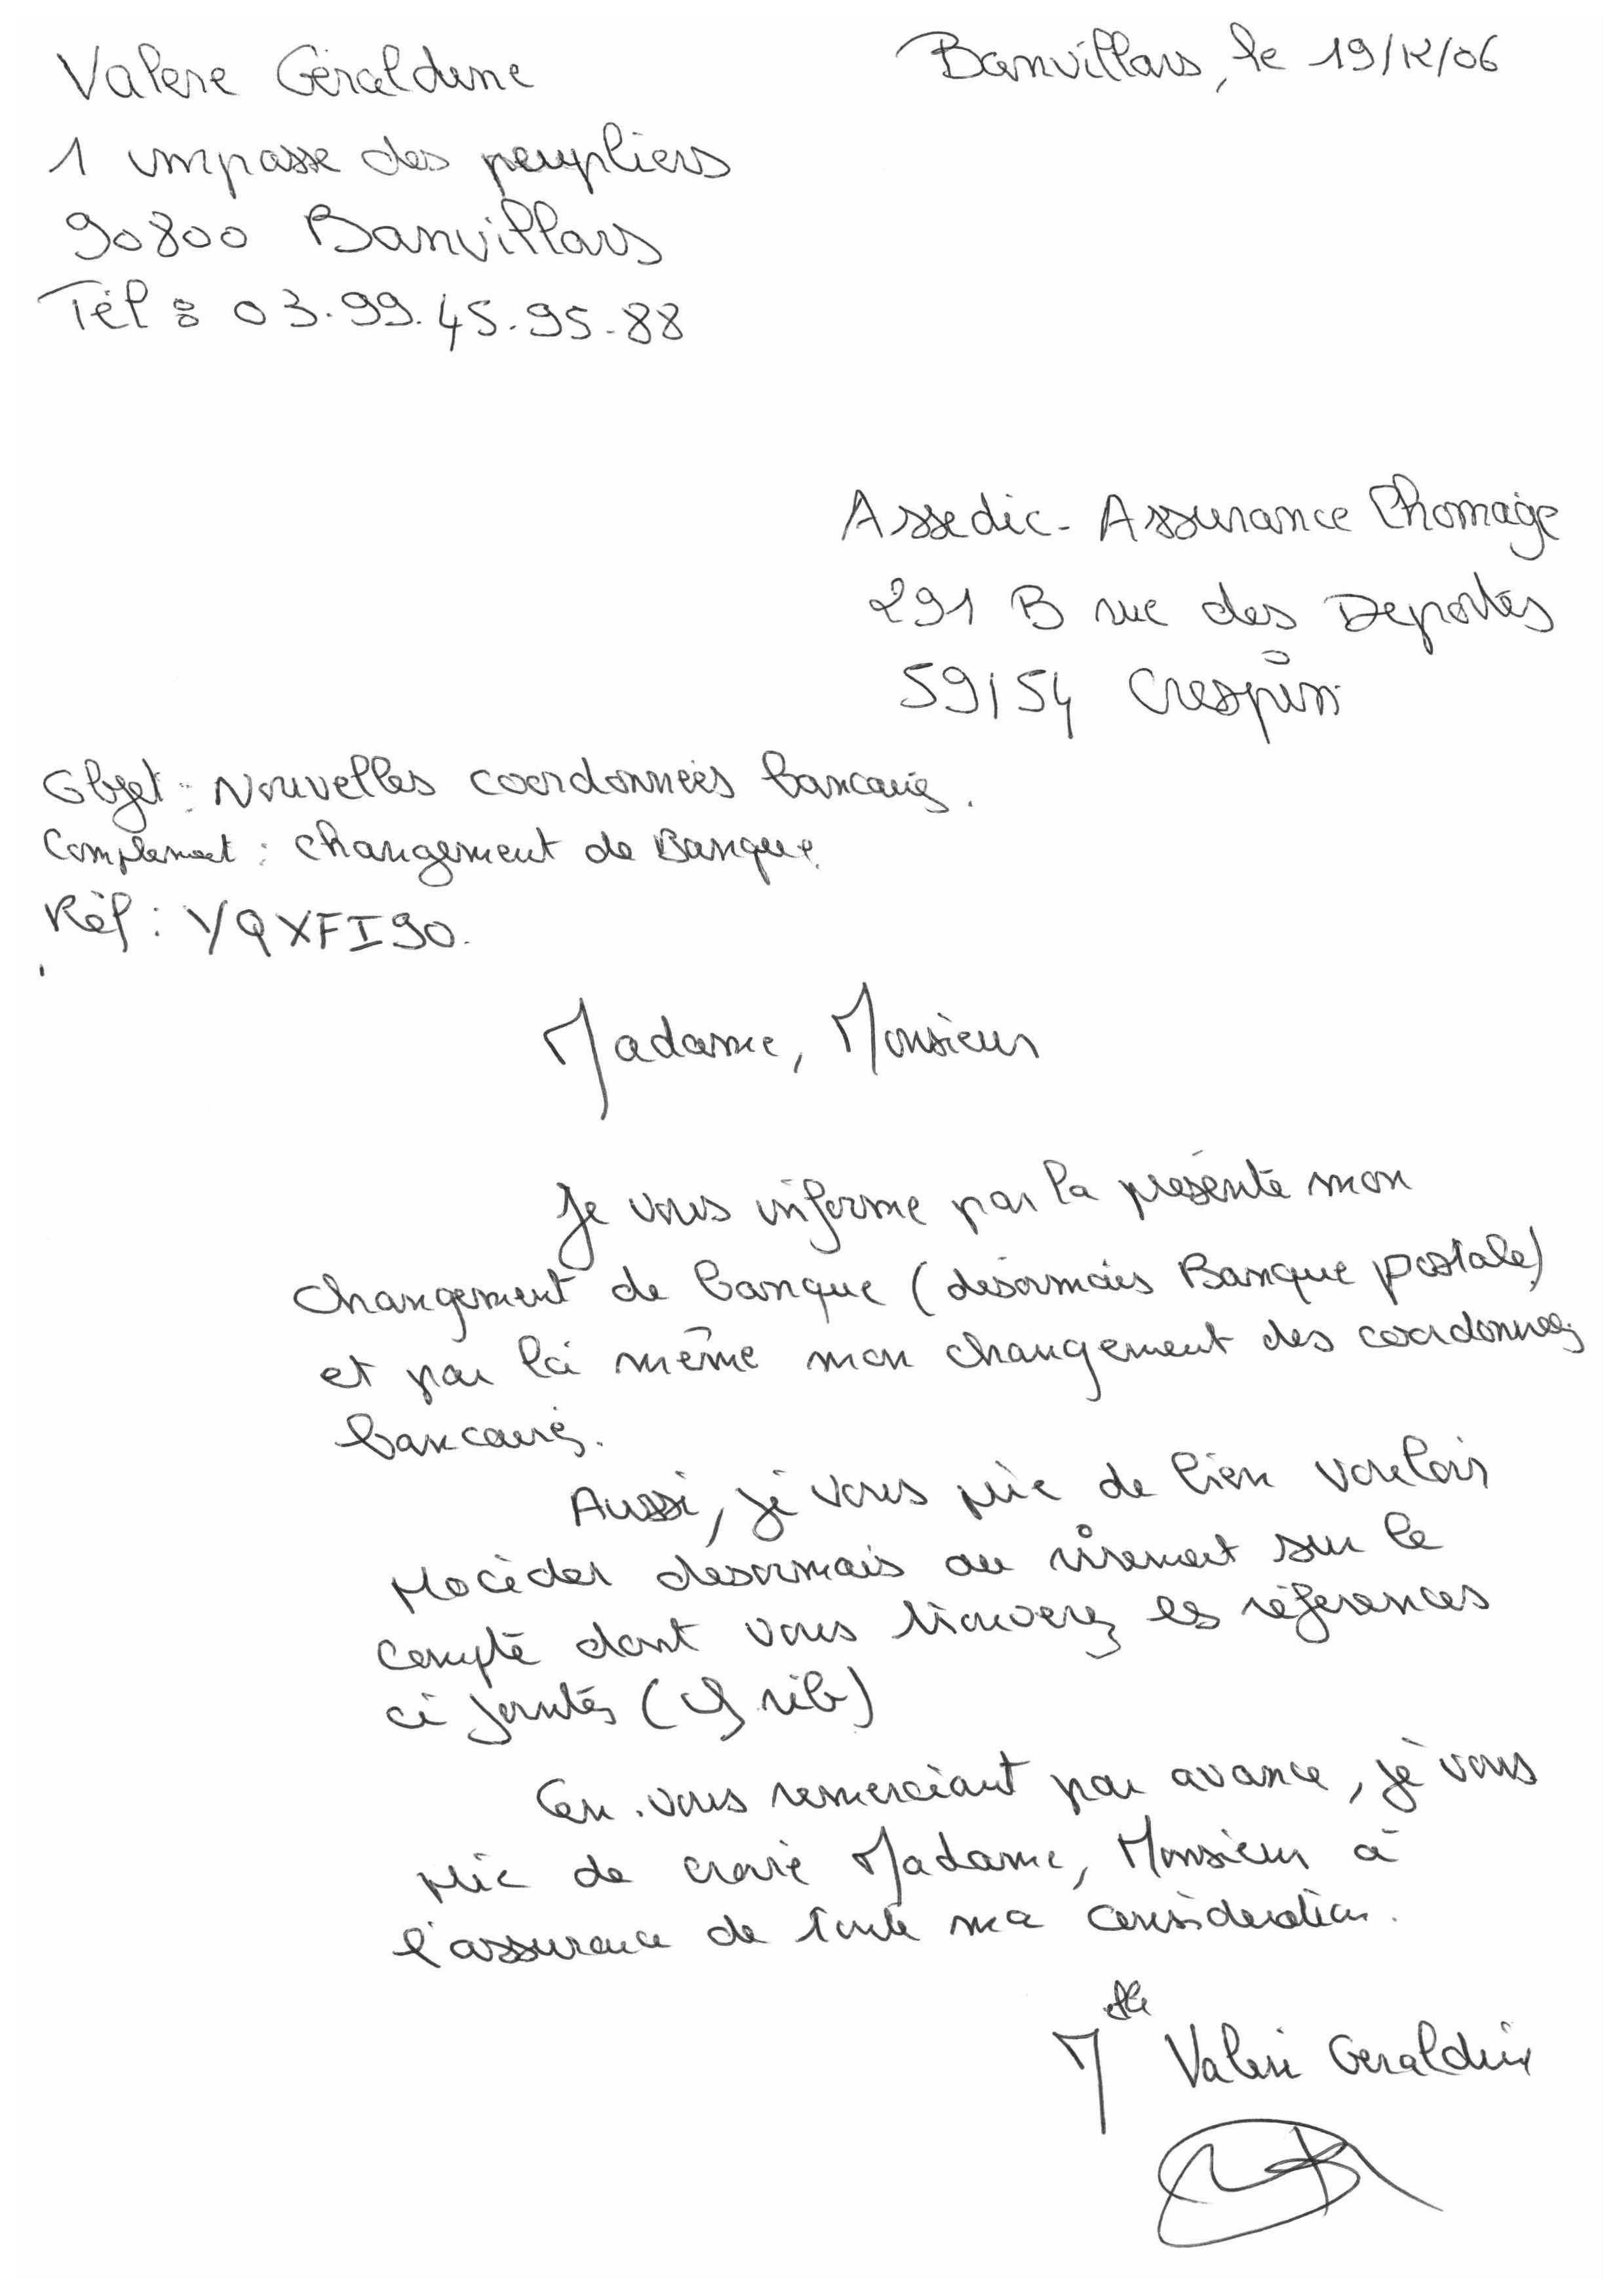 Valere Géraldine
Banvillars, le 19/12/06
1 impasse des peupliers
90800 Banvillars
Tél : 03.99.45.95.88
Assedic - Assurance Chomage
291 B rue des Deportés
59154 Crespin
Objet : Nouvelles coordonnées bancaires.
Complement : changement de Banque.
Réf : YQXFI90.
Madame, Monsieur
Je vous informe par la présente mon
changement de banque (désormais Banque postale)
et par là même mon changement des coordonnées
bancaires.
Aussi, je vous prie de bien vouloir
procéder desormais au virement sur le
compte dont vous trouverez les réferences
ci jointes (cf rib)
En vous remerciant par avance, je vous
prie de croire Madame, Monsieur à
l'assurance de toute ma consideration.
Melle Valere Geraldine